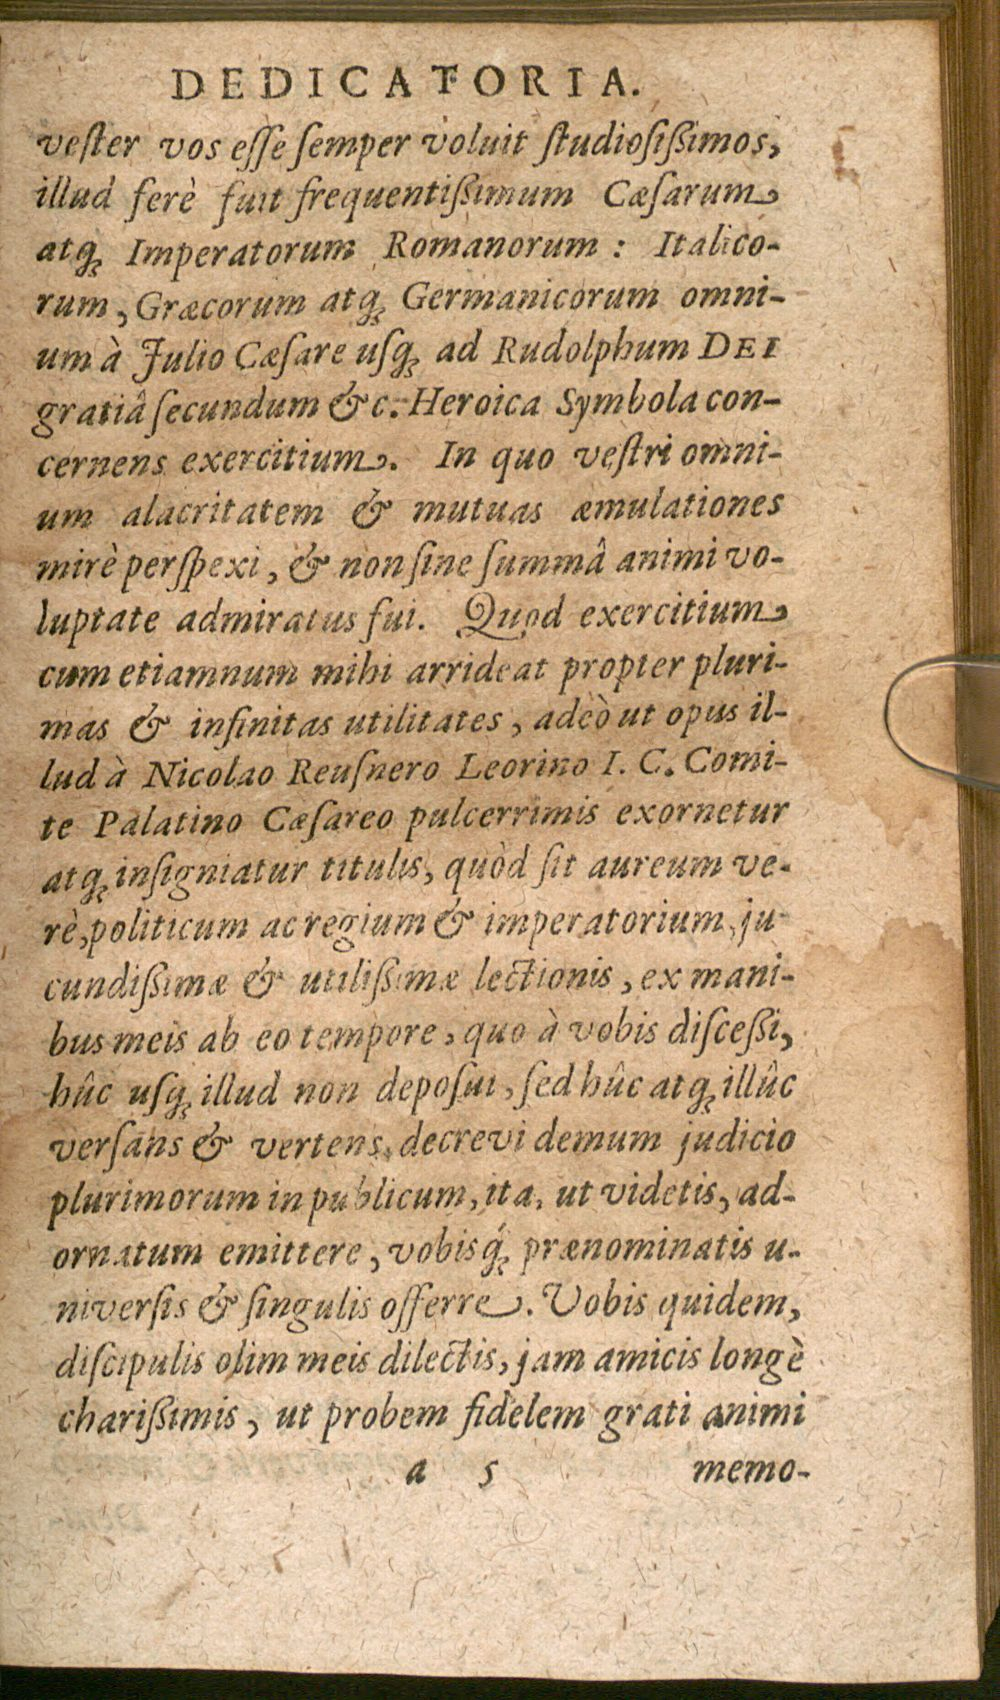 DEDICATORIA.
veſter vos eſſe ſemper voluit ſtudioſißimos,
illud ferè fuit frequentißimum Cæſarum
atq́ꝫ Imperatorum Romanorum : Italico-
rum, Græcorum atqꝫ Germanicorum omni-
um à Julio Cæſare uſqꝫ ad Rudolphum DEI
gratiâ ſecundum &c. Heroica Symbola con-
cernens exercitium. In quo veſtri omni-
um alacritatem & mutuas æmulationes
mirè perſpexi, & non ſine ſummâ animi vo-
luptate admiratus fui. Quod exercitium
cum etiamnum mihi arrideat propter pluri-
mas & infinitas utilitates, adeò ut opus il-
lud à Nicolao Reuſnero Leorino I. C. Comi-
te Palatino Cæſareo pulcerrimis exornetur
atqꝫ inſigniatur titulis, quòd ſit aureum ve-
rè, politicum ac regium & imperatorium, ju
cundißimæ & utilißimæ lectionis, ex mani-
bus meis ab eo tempore, quo à vobis diſceßi,
hûc uſqꝫ illud non depoſui, ſed hûc atqꝫ illûc
verſans & vertens, decrevi demum judicio
plurimorum in publicum, ita, ut videtis, ad-
ornatum emittere, vobisq́ꝫ prænominatis u-
niverſis & ſingulis offerre. Vobis quidem,
diſcipulis olim meis dilectis, jam amicis longè
charißimis, ut probem fidelem grati animi
a 5 memo-